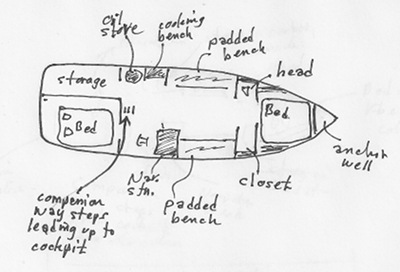 oil
stove
cooking
bench
padded
bench
head
storage
Bed
Bed
anchor
well
Nav.
stn.
closet
padded
bench
companion
way steps
leading up to
cockpit